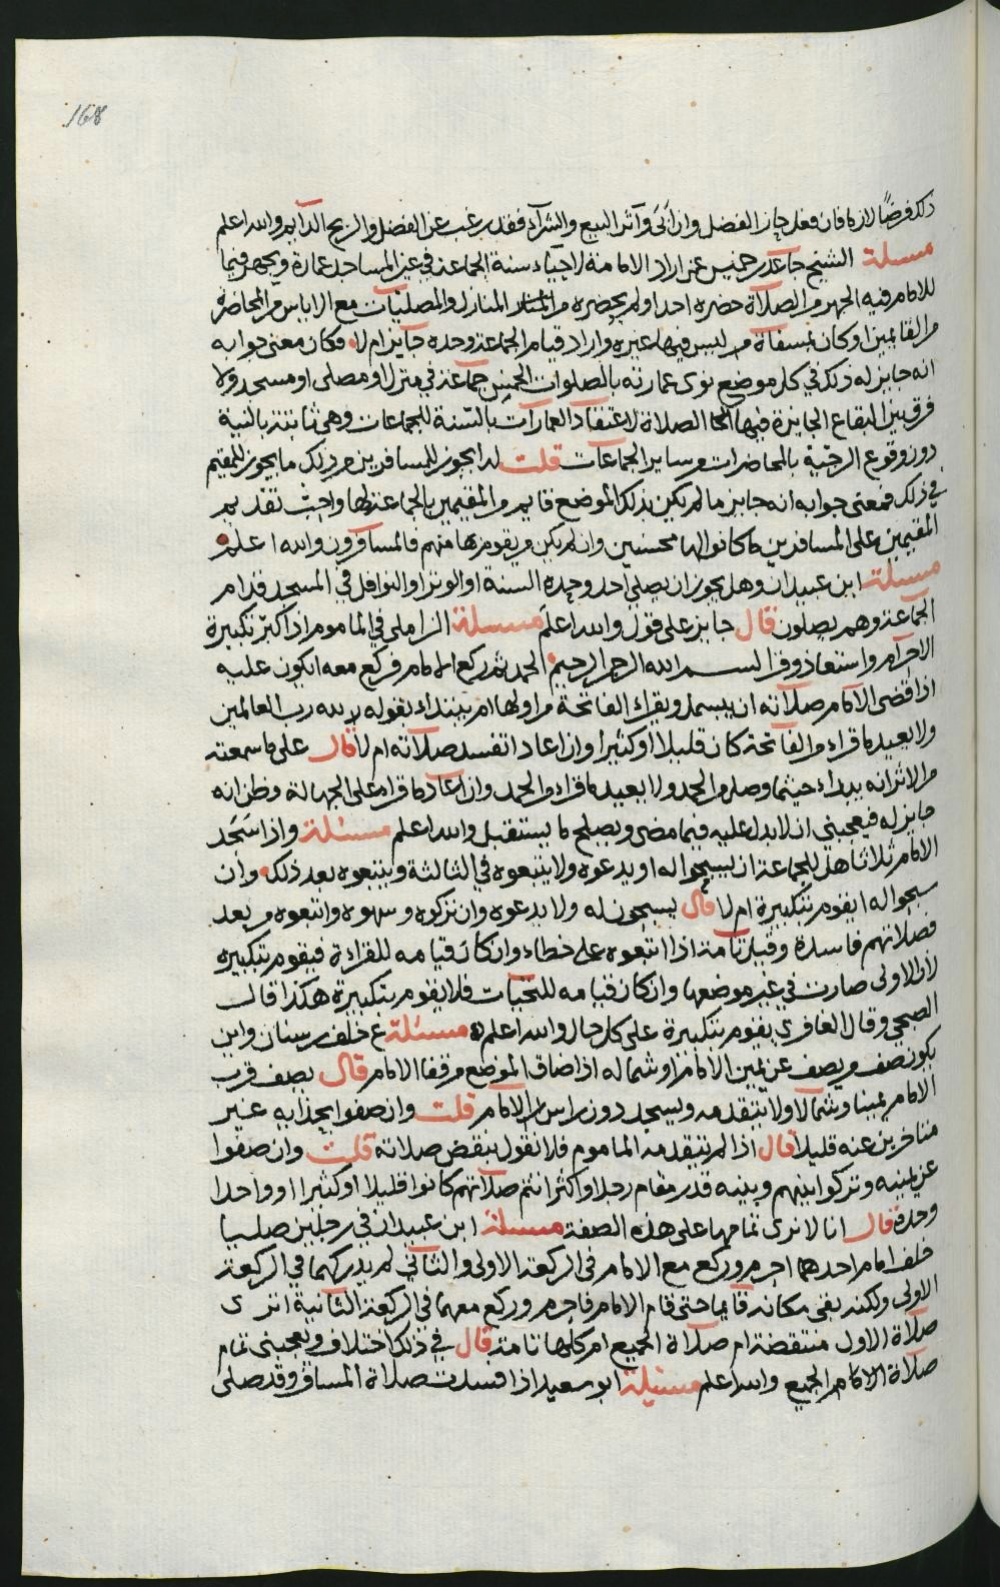 168
ذلك فرضا لازما فان فعل حاز الفضل وان أبى وآثر البيع والشرآء فقد رغب عن الفضل والربح الدآيم والله اعلم
مسئلة الشيخ جاعد بن خميس عمن اراد الامامة لاحياء سنة الجماعة في غير المساجد عمارة ويجهر فيما
للامام فيه الجهر من الصلاة حضره احد او لم يحضره من المنازل والمصليات مع الاياس من المحاضرة
من القايمين او كان بمسفاة من ليس فيها غيره واراد قيام الجماعة وحده جايز ام لا فكان معنى جوابه
انه جايز له ذلك في كل موضع نوى عمارته بالصلوات الخمس جماعة في منزل او مصلى او مسجد ولا
فرق بين البقاع الجايزة فيها الصلاة لاعتقاد العمارات بالسنة للجماعات وهي ثابتة بالنية
دون وقوع الرجية بالمحاضرات من ساير الجماعات قلت له ايجوز للمسافرين من ذلك ما يجوز للمقيم
في ذلك فمعنى جوابه انه جايز ما لم يكن بذلك الموضع قايم من المقيمين بالجماعة لها واجب تقديم
المقيمين على المسافرين ما كانوا لها محسنين وان لم يكن من يقوم بها منهم فالمسافرون والله اعلم
مسئلة ابن عبيدان وهل يجوز ان يصلي احد وحده السنة او الوتر او النوافل في المسجد قدام
الجماعة وهم يصلون قال جايز على قول والله اعلم مسئلة الزاملي في الماموم اذا كبر تكبيرة
الاحرآم واستعاذ وقرا بسم الله الرحمن الرحيم الحمد ثم ركع الامام فركع معه ايكون عليه
اذا قضى الامام صلاته ان يبسمل ويقراء الفاتحة من اولها ام يبتداء بقوله لله رب العالمين
ولا يعيد ما قراء من الفاتحة كان قليلا او كثيرا وان اعاد اتفسد صلاته ام لا قال على ما سمعته
من الاثر انه يبداء حيثما وصل من الحمد ولا يعيد ما قراء من الحمد وان اعاد ما قراه على الجهالة وظن انه
جايز له فيعجبني ان لا بدل عليه فيما مضى ويصلح ما يستقبل والله اعلم مسئلة واذا سجد
الامام ثلاثا هل للجماعة ان يسبحوا له او يدعوه ولا يتبعوه في الثالثة ويتبعوه بعد ذلك وان
سبحوا له ايقوم بتكبيرة ام لا قال يسبحون له ولا يدعوه وان تركوه وسهوه واتبعوه من بعد
فصلاتهم فاسدة وقيل تامة اذا اتبعوه على خطاء وان كان قيامه للقراءة فيقوم بتكبيره
لان الاولى صارت في غير موضعها وان كان قيامه للتحيات فلا يقوم بتكبيرة هكذا قال
الصبحي وقال الغافري يقوم بتكبيرة على كل حال والله اعلم مسئلة ع خلف بن سنان واين
يكون صف من يصف عن يمين الامام او شماله اذا ضاق الموضع من قفا الامام قال يصف قرب
الامام يمينا وشمالا ولا يتقدمه ويسجد دون راس الامام قلت وان صفوا بحذايه غير
متاخرين عنه قليلا قال اذا لم يتقدمه الماموم فلا نقول بنقض صلاته قلت وان صفوا
عن يمينه وتركوا بينهم وبينه قدر مقام رجل او اكثر اتتم صلاتهم كانوا قليلا او كثيرا او واحدا
وحده قال انا لا نرى تمامها على هذه الصفة مسئلة ابن عبيدان في رجلين صليا
خلف امام احدهما احرم وركع مع الامام في الركعة الاولى والثاني لم يدركهما في الركعة
الاولى ولكنه بقى مكانه قايما حتى قام الامام فاحرم وركع معهما في الركعة الثانية اترى
صلاة الاول منتقضة ام صلاة الجميع ام كلها تامة قال في ذلك اختلاف ويعجبني تمام
صلاة الامام الجميع والله اعلم مسئلة ابو سعيد اذا فسدت صلاة المسافر وقد صلى